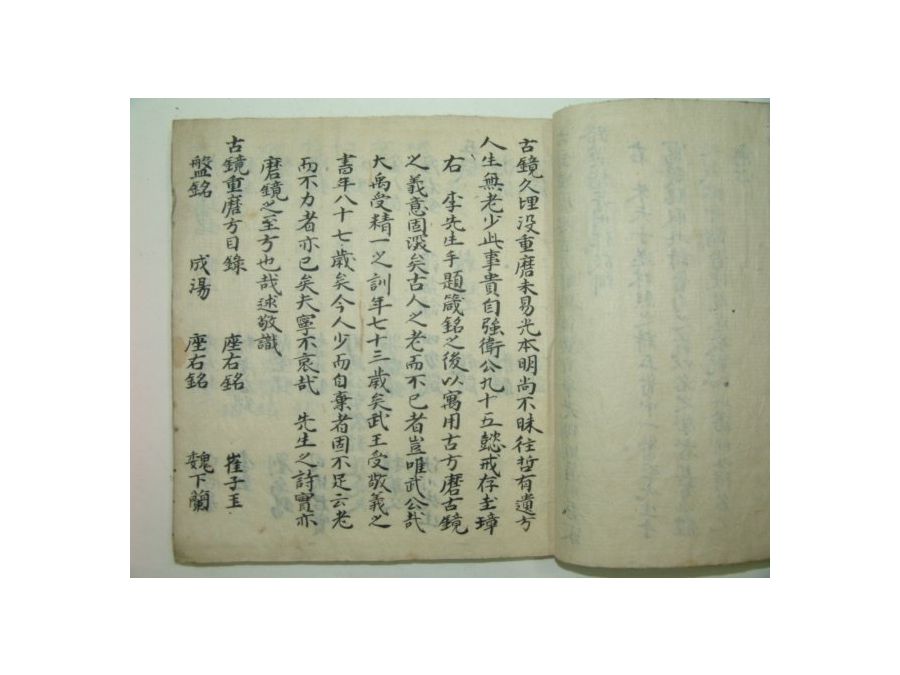 古鏡久埋没重磨未易光本明尚不昧往哲有遺方
人生無老少此事貴自強衛公九十五懿戒存圭璋
右 李先生手題箴銘之後以寓用古方磨古鏡
之義意固深矣古人之老而不已者豈唯武公哉
大禹受精一之訓年七十三歲矣武王受敬義之
書年八十七歲矣今人少而自棄者固不足云老
而不力者亦已矣夫寧不哀哉 先生之詩實亦
磨鏡之至方也哉逑敬識
古鏡重磨方目錄 座右銘 崔子玉
盤銘 成湯 座右銘 魏卞蘭